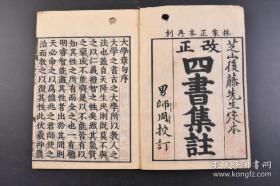 林家正本再刻
芝山後藤先生定本
改正
四書集註
男師周校訂
大學章句序
大學之書古之大學所以教人之
法也蓋自天降生民則既莫不與
之以仁義禮智之性矣然其氣質
之稟或不能齊是以不能皆有以
知其性之所有而全之也一有聰
明睿智能盡其性者出於其間則
天必命之以爲億兆之君師使之
治而教之以復其性此伏羲神農